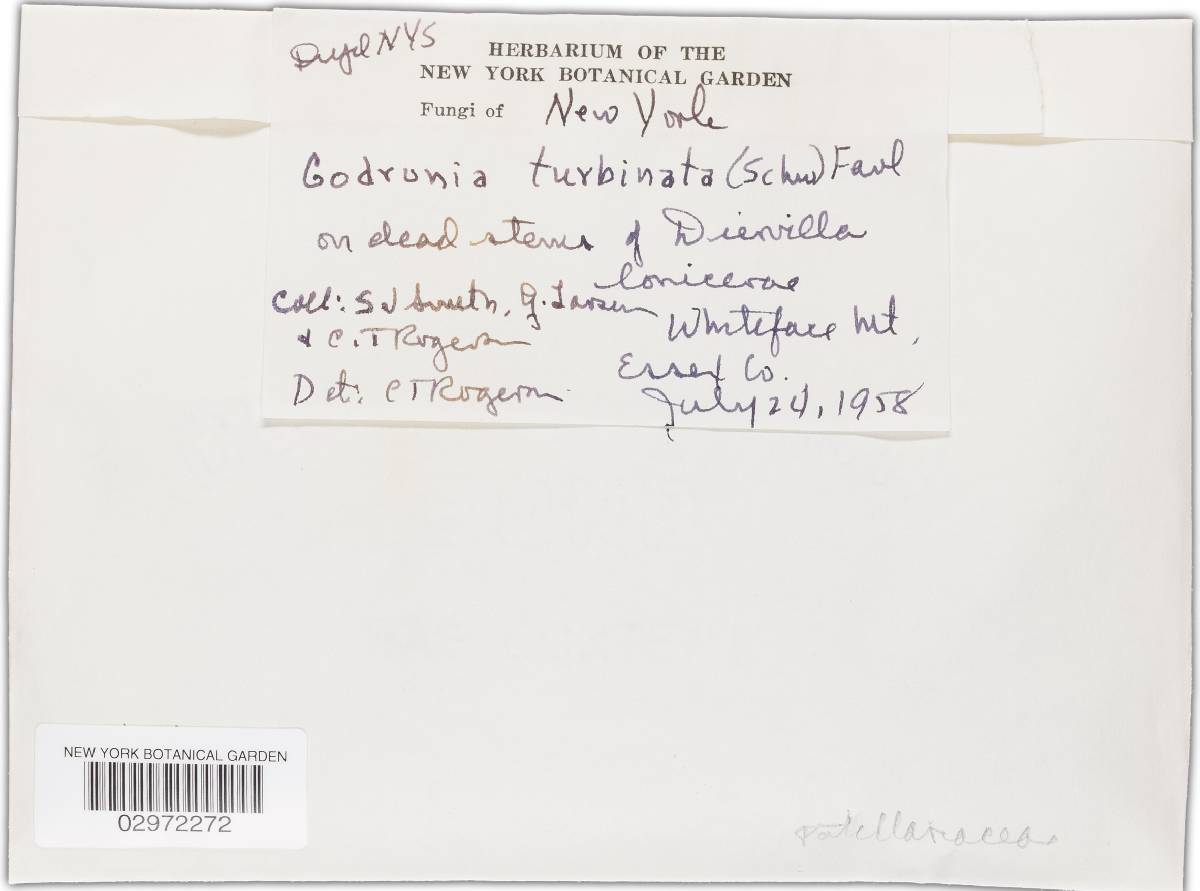 Dupl NYS
HERBARIUM OF THE
NEW YORK BOTANICAL GARDEN
Fungi of New York
Godronia turbinata (Schw) Favl
on dead stems of Diervilla
lonicerae
Coll: S J Smith, G. Larsen
& C. T Rogerson
Whiteface Mt,
Essex Co.
Det: C T Rogerson
July 24, 1958
NEW YORK BOTANICAL GARDEN
02972272
Patellariaceae